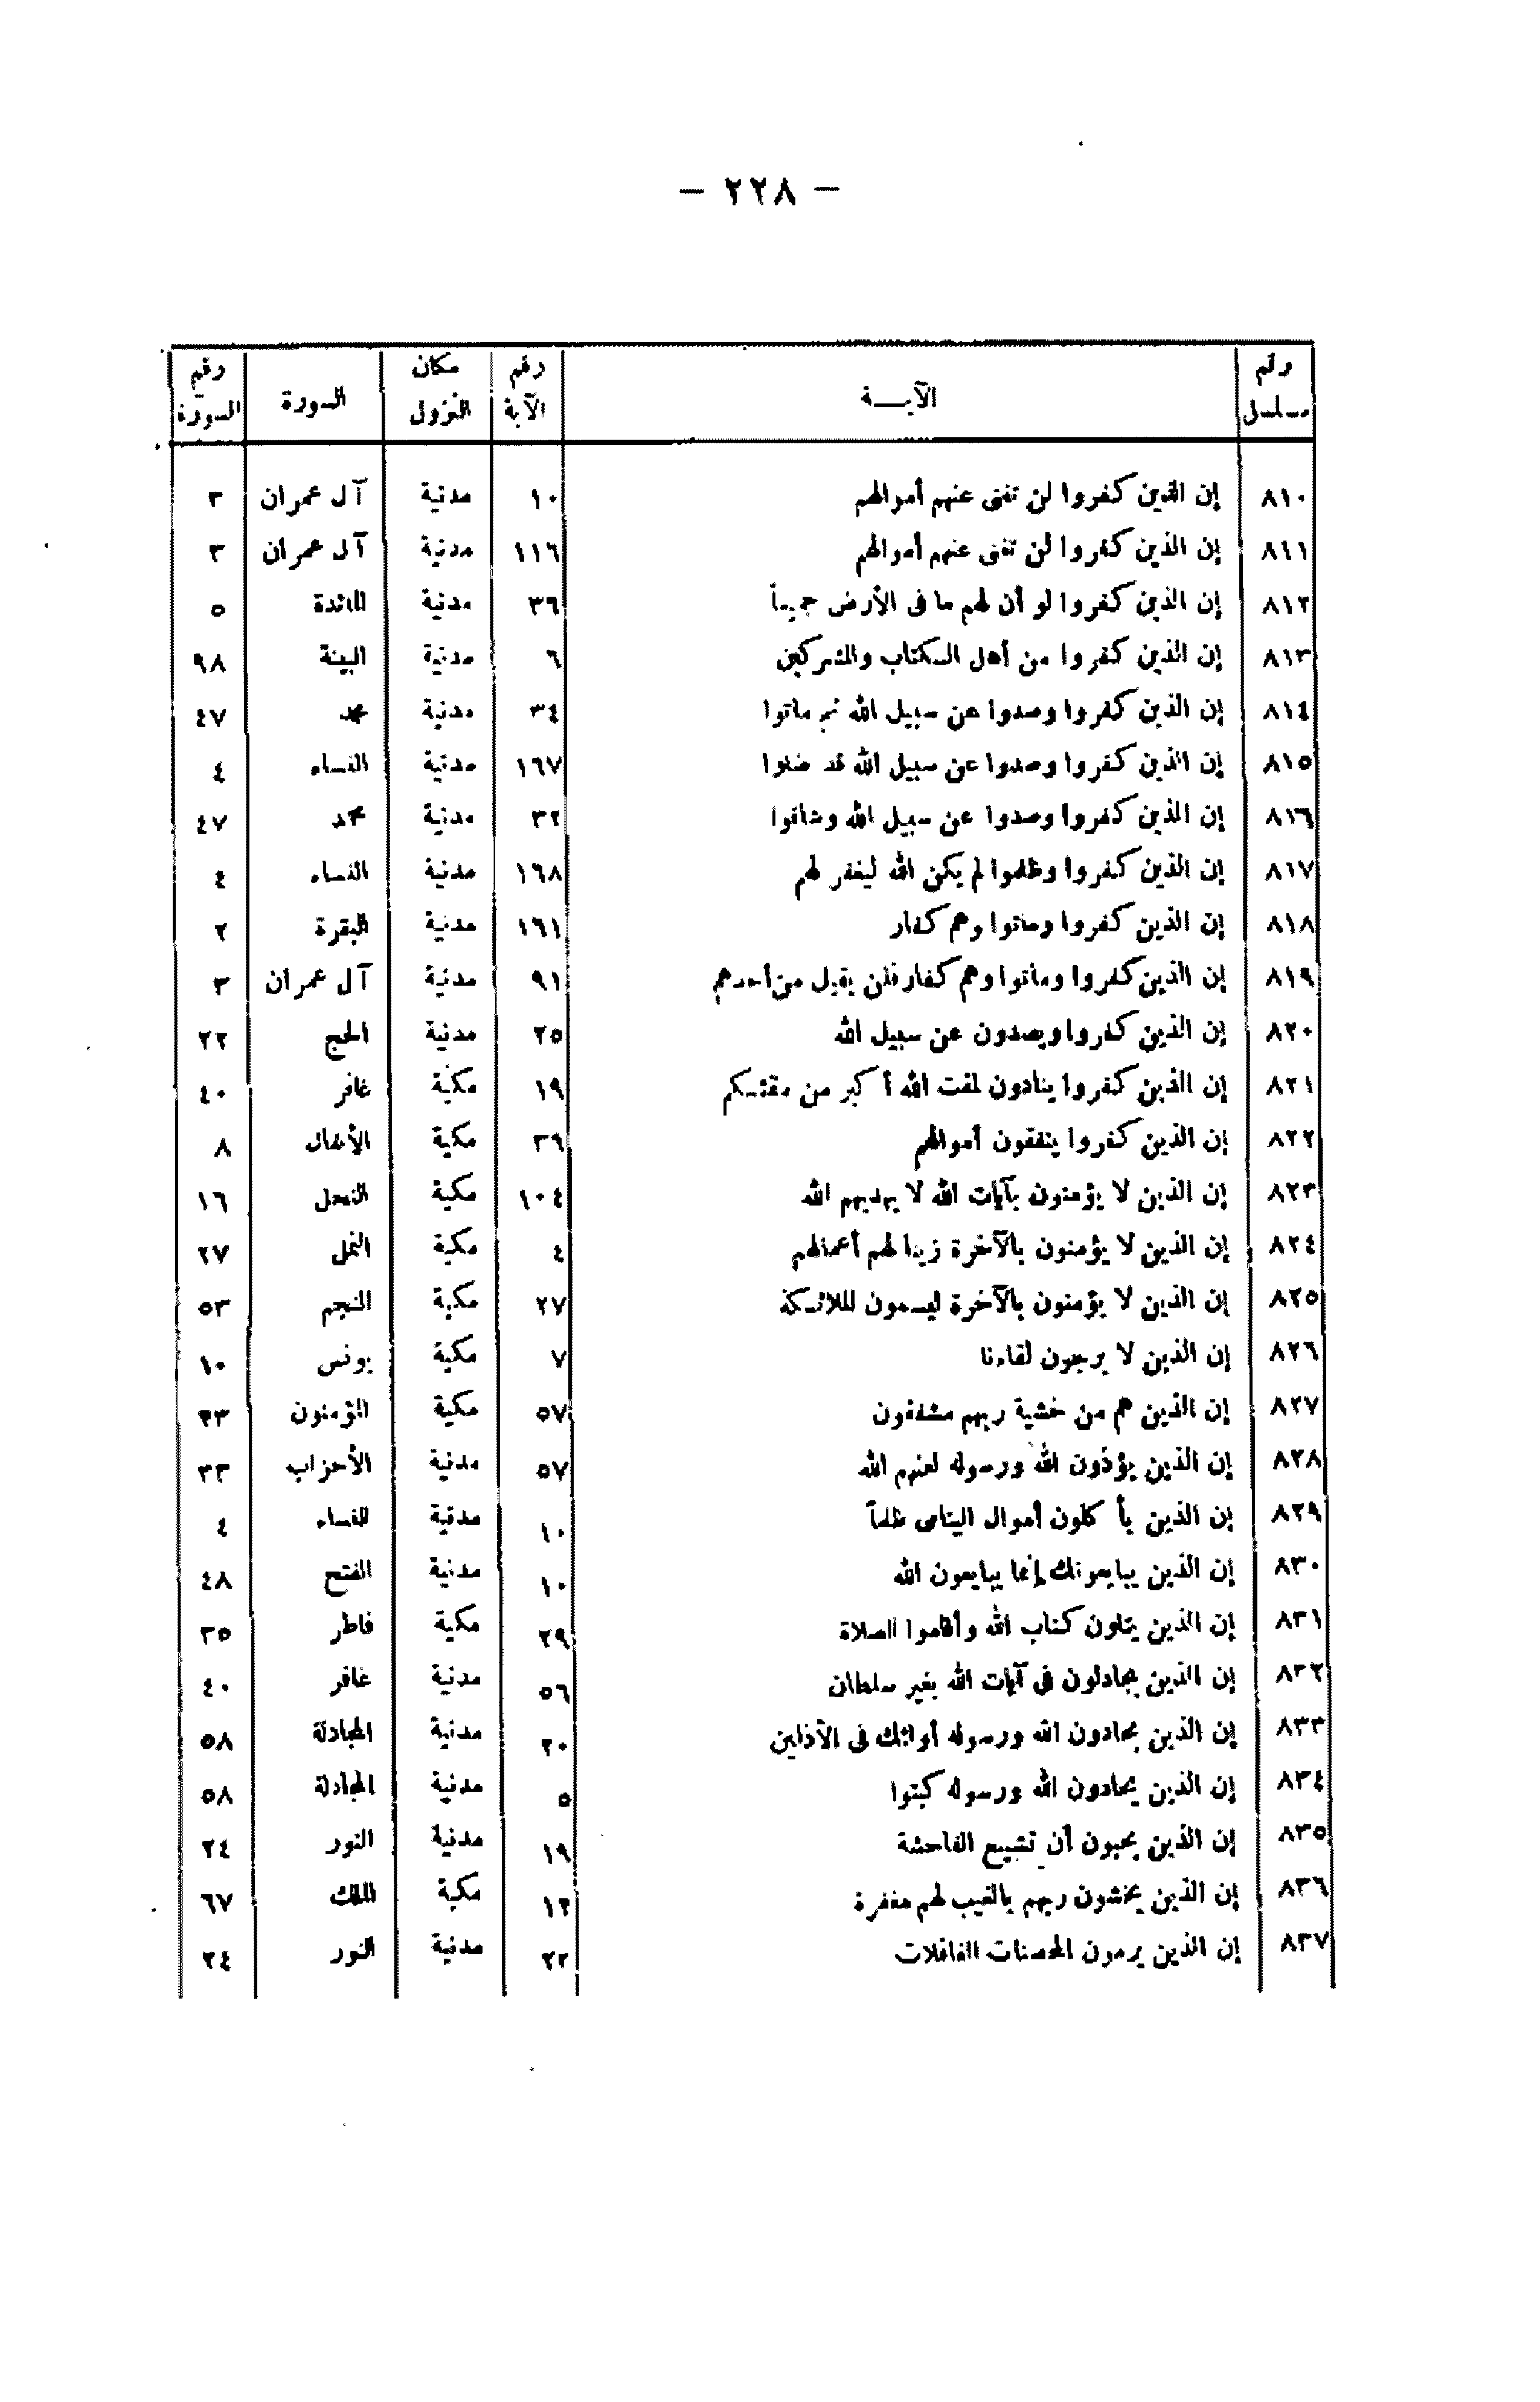 — ٢٢٨ —
رقم مسلسل الآيـــة رقم الآية مكان النزول السورة رقم السورة
٨١٠ إن الذين كفروا لن تغنى عنهم أموالهم ١٠ مدنية آل عمران ٣
٨١١ إن الذين كفروا لن تغنى عنهم أموالهم ١١٦ مدنية آل عمران ٣
٨١٢ إن الذين كفروا لو أن لهم ما فى الأرض جميعاً ٣٦ مدنية المائدة ٥
٨١٣ إن الذين كفروا من أهل الكتاب والمشركين ٦ مدنية البينة ٩٨
٨١٤ إن الذين كفروا وصدوا عن سبيل الله ثم ماتوا ٣٤ مدنية محمد ٤٧
٨١٥ إن الذين كفروا وصدوا عن سبيل الله قد ضلوا ١٦٧ مدنية النساء ٤
٨١٦ إن الذين كفروا وصدوا عن سبيل الله وشاقوا ٣٢ مدنية محمد ٤٧
٨١٧ إن الذين كفروا وظلموا لم يكن الله ليغفر لهم ١٦٨ مدنية النساء ٤
٨١٨ إن الذين كفروا وماتوا وهم كفار ١٦١ مدنية البقرة ٢
٨١٩ إن الذين كفروا وماتوا وهم كفار فلن يقبل من أحدهم ٩١ مدنية آل عمران ٣
٨٢٠ إن الذين كفروا ويصدون عن سبيل الله ٢٥ مدنية الحج ٢٢
٨٢١ إن الذين كفروا ينادون لمقت الله أكبر من مقتكم ١٩ مكية غافر ٤٠
٨٢٢ إن الذين كفروا ينفقون أموالهم ٣٦ مكية الأنفال ٨
٨٢٣ إن الذين لا يؤمنون بآيات الله لا يهديهم الله ١٠٤ مكية النحل ١٦
٨٢٤ إن الذين لا يؤمنون بالآخرة زينا لهم أعمالهم ٤ مكية النمل ٢٧
٨٢٥ إن الذين لا يؤمنون بالآخرة ليسمون الملائكة ٢٧ مكية النجم ٥٣
٨٢٦ إن الذين لا يرجون لقاءنا ٧ مكية يونس ١٠
٨٢٧ إن الذين هم من خشية ربهم مشفقون ٥٧ مكية المؤمنون ٢٣
٨٢٨ إن الذين يؤذون الله ورسوله لعنهم الله ٥٧ مدنية الأحزاب ٣٣
٨٢٩ إن الذين يأكلون أموال اليتامى ظلماً ١٠ مدنية النساء ٤
٨٣٠ إن الذين يبايعونك إنما يبايعون الله ١٠ مدنية الفتح ٤٨
٨٣١ إن الذين يتلون كتاب الله وأقاموا الصلاة ٢٩ مكية فاطر ٣٥
٨٣٢ إن الذين يجادلون فى آيات الله بغير سلطان ٥٦ مدنية غافر ٤٠
٨٣٣ إن الذين يحادون الله ورسوله أولئك فى الأذلين ٢٠ مدنية المجادلة ٥٨
٨٣٤ إن الذين يحادون الله ورسوله كبتوا ٥ مدنية المجادلة ٥٨
٨٣٥ إن الذين يحبون أن تشيع الفاحشة ١٩ مدنية النور ٢٤
٨٣٦ إن الذين يخشون ربهم بالغيب لهم مغفرة ١٢ مكية الملك ٦٧
٨٣٧ إن الذين يرمون المحصنات الغافلات ٢٣ مدنية النور ٢٤